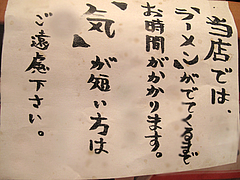 当店では、
「ラーメン」がでてくるまで
お時間がかかります。
「気」が短い方は
ご遠慮下さい。